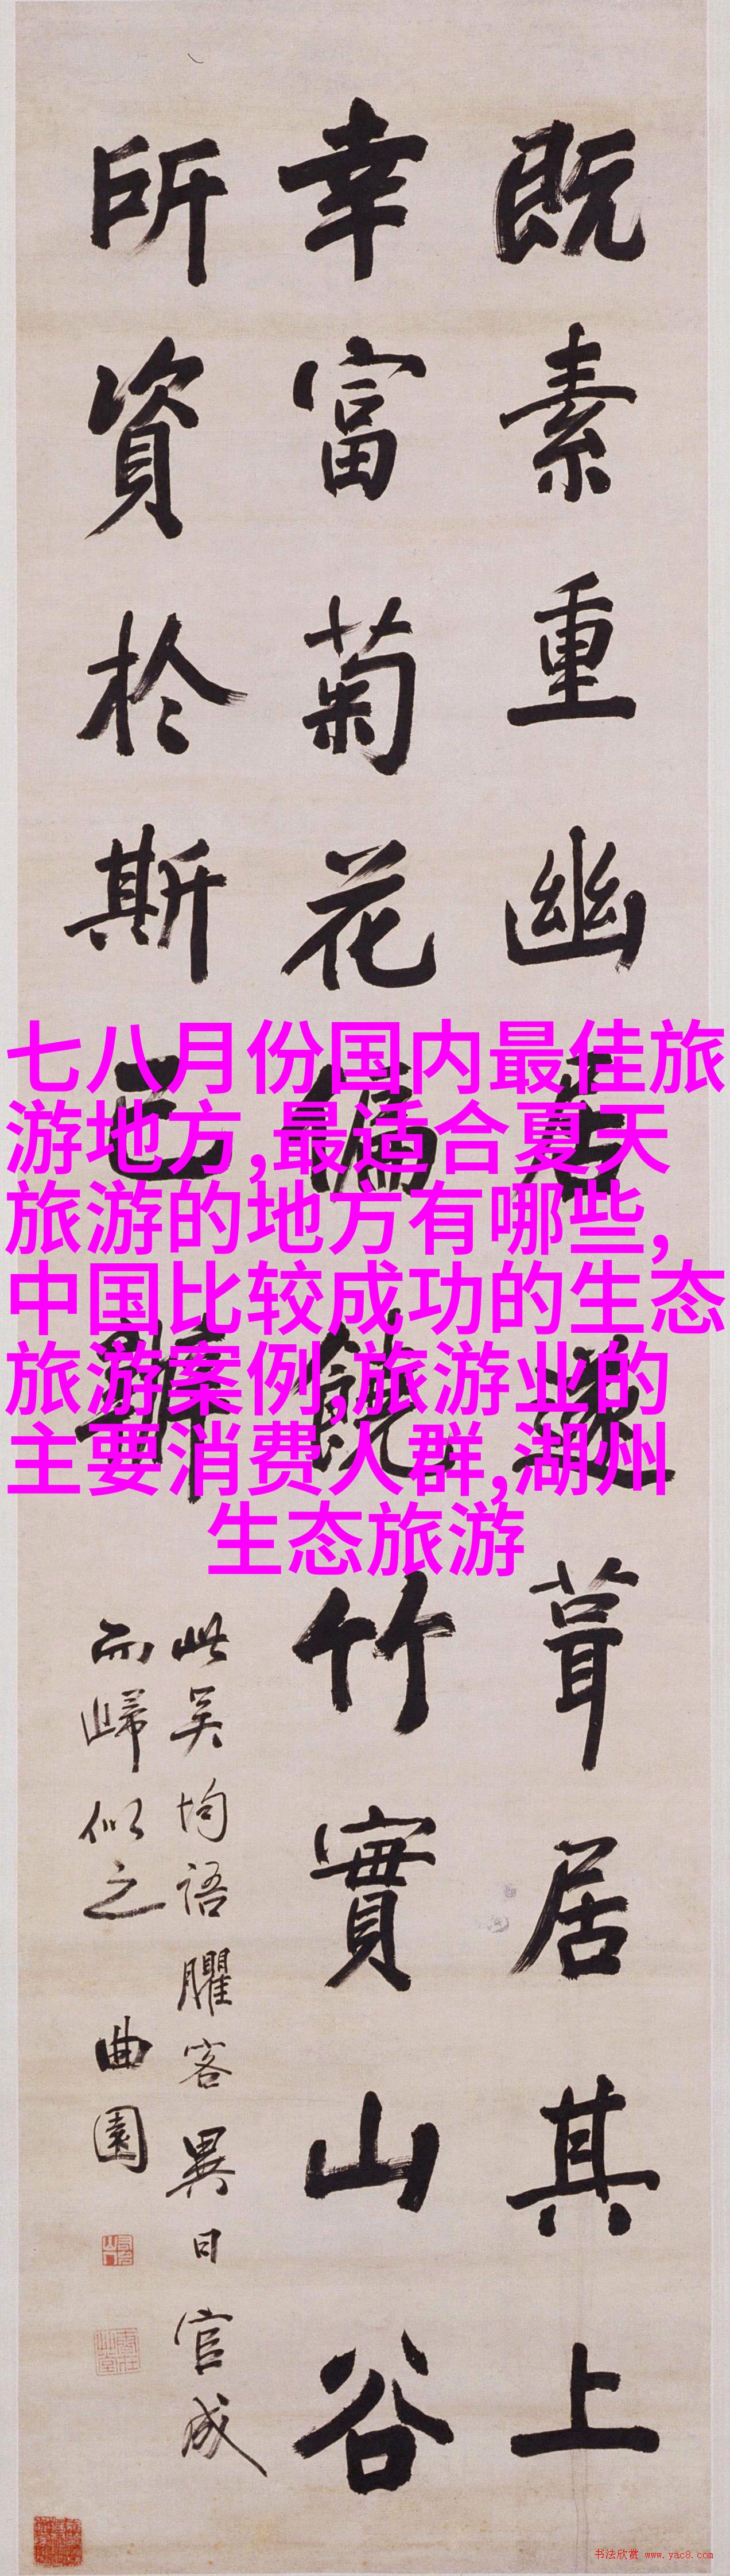 既素重幽居遂葺居其上
幸富菊花偏饒竹實山谷
所資於斯已辦
此吴均語臞客異日官成
而歸似之
曲園
七八月份国内最佳旅
游地方,最适合夏天
旅游的地方有哪些,
中国比较成功的生态
旅游案例,旅游业的
主要消费人群,湖州
生态旅游
书法欣赏 www.yac8.com